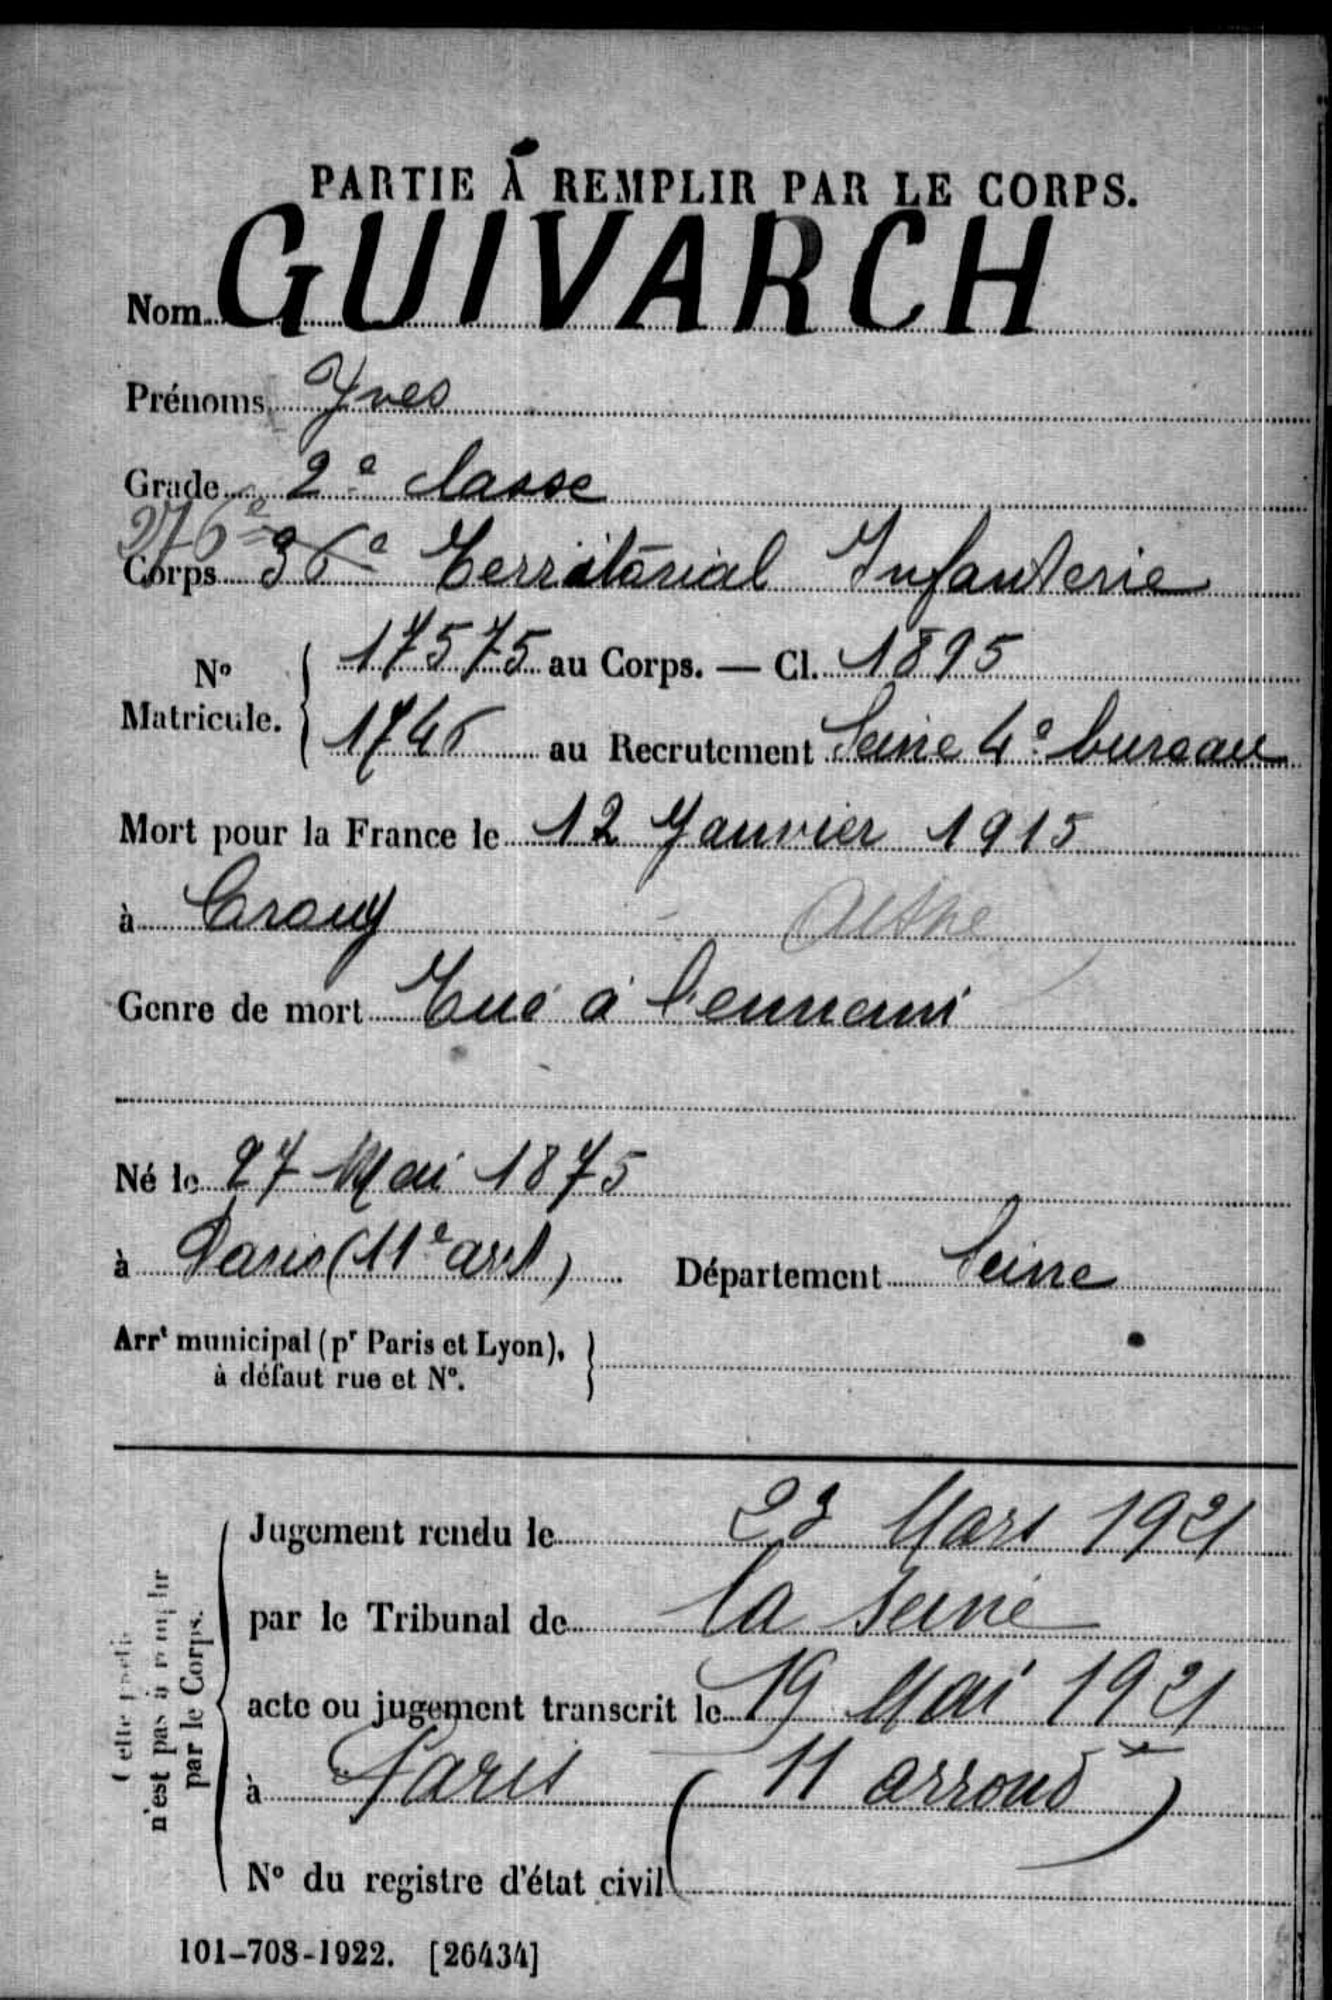 PARTIE À REMPLIR PAR LE CORPS.
Nom GUIVARCH
Prénoms Yves
Grade 2e classe
276e
Corps 36e Territorial Infanterie
No Matricule. 17575 au Corps. — Cl. 1895
1746 au Recrutement Seine 4e bureau
Mort pour la France le 12 Janvier 1915
à Crouy Aisne
Genre de mort Tué à l'ennemi
Né le 27 Mai 1875
à Paris (11e arrt) Département Seine
Arrt municipal (pr Paris et Lyon),
à défaut rue et No.
Cette partie
n'est pas à remplir
par le Corps.
Jugement rendu le 23 Mars 1921
par le Tribunal de la Seine
acte ou jugement transcrit le 19 Mai 1921
à Paris (11 arrondt)
No du registre d'état civil
101-708-1922. [26434]